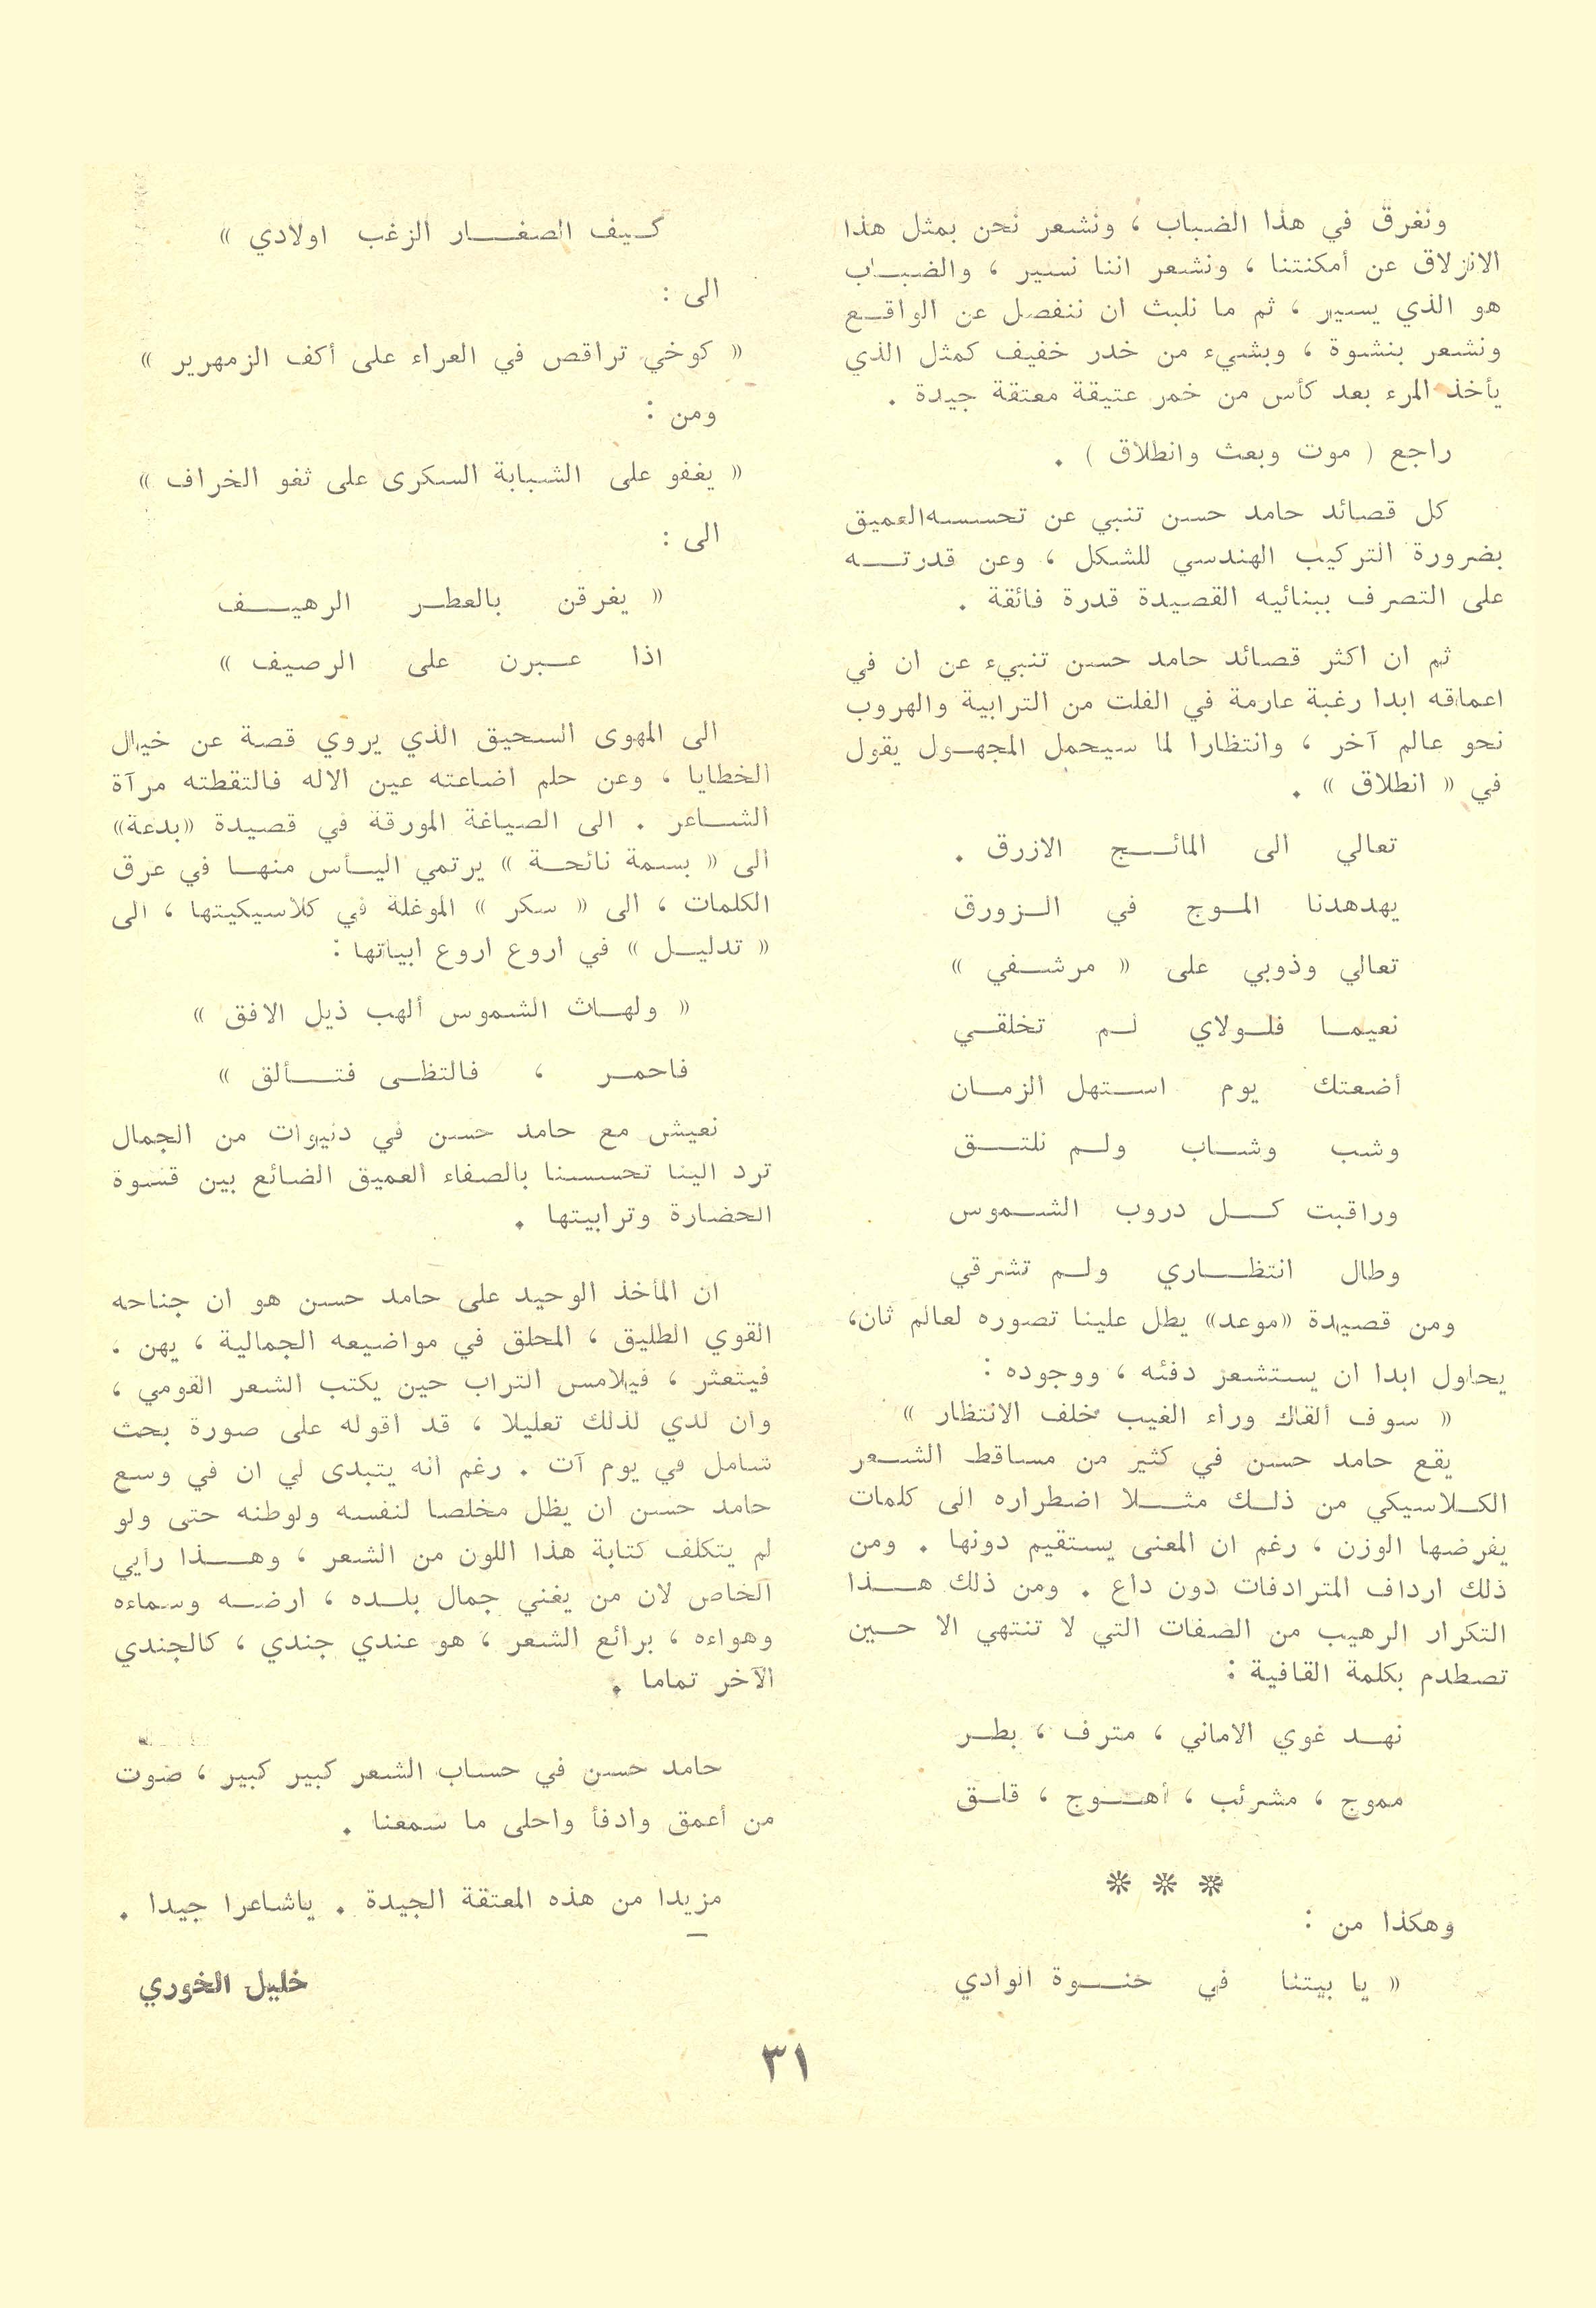 ونغرق في هذا الضباب ، ونشعر نحن بمثل هذا
الانزلاق عن أمكنتنا ، ونشعر اننا نسير ، والضباب
هو الذي يسير ، ثم ما نلبث ان ننفصل عن الواقع
ونشعر بنشوة ، وبشيء من خدر خفيف كمثل الذي
يأخذ المرء بعد كأس من خمر عتيقة معتقة جيدة .
راجع ( موت وبعث وانطلاق ) .
كل قصائد حامد حسن تنبي عن تحسسه العميق
بضرورة التركيب الهندسي للشكل ، وعن قدرته
على التصرف ببنائيه القصيدة قدرة فائقة .
ثم ان اكثر قصائد حامد حسن تنبيء عن ان في
اعماقه ابدا رغبة عارمة في الفلت من الترابية والهروب
نحو عالم آخر ، وانتظارا لما سيحمل المجهول يقول
في « انطلاق » .
تعالي الى المائج الازرق .
يهدهدنا الموج في الزورق
تعالي وذوبي على « مرشفي »
نعيما فلولاي لم تخلقي
أضعتك يوم استهل الزمان
وشب وشاب ولم نلتق
وراقبت كل دروب الشموس
وطال انتظاري ولم تشرقي
ومن قصيدة «موعد» يطل علينا تصوره لعالم ثان،
يحاول ابدا ان يستشعر دفئه ، ووجوده :
« سوف ألقاك وراء الغيب خلف الانتظار »
يقع حامد حسن في كثير من مساقط الشعر
الكلاسيكي من ذلك مثلا اضطراره الى كلمات
يفرضها الوزن ، رغم ان المعنى يستقيم دونها . ومن
ذلك ارداف المترادفات دون داع . ومن ذلك هذا
التكرار الرهيب من الصفات التي لا تنتهي الا حين
تصطدم بكلمة القافية :
نهد غوي الاماني ، مترف ، بطر
مموج ، مشرئب ، أهوج ، قلق
* * *
وهكذا من :
« يا بيتنا في حنوة الوادي
كيف الصغار الزغب اولادي »
الى :
« كوخي تراقص في العراء على أكف الزمهرير »
ومن :
« يغفو على الشبابة السكرى على ثغو الخراف »
الى :
« يغرقن بالعطر الرهيف
اذا عبرن على الرصيف »
الى المهوى السحيق الذي يروي قصة عن خيال
الخطايا ، وعن حلم اضاعته عين الاله فالتقطته مرآة
الشاعر . الى الصياغة المورقة في قصيدة «بدعة»
الى « بسمة نائحة » يرتمي اليأس منها في عرق
الكلمات ، الى « سكر » الموغلة في كلاسيكيتها ، الى
« تدليل » في اروع اروع ابياتها :
« ولهاث الشموس ألهب ذيل الافق »
فاحمر ، فالتظى فتألق »
نعيش مع حامد حسن في دنيوات من الجمال
ترد الينا تحسسنا بالصفاء العميق الضائع بين قسوة
الحضارة وترابيتها .
ان المأخذ الوحيد على حامد حسن هو ان جناحه
القوي الطليق ، المحلق في مواضيعه الجمالية ، يهن ،
فيتعثر ، فيلامس التراب حين يكتب الشعر القومي ،
وان لدي لذلك تعليلا ، قد أقوله على صورة بحث
شامل في يوم آت . رغم انه يتبدى لي ان في وسع
حامد حسن ان يظل مخلصا لنفسه ولوطنه حتى ولو
لم يتكلف كتابة هذا اللون من الشعر ، وهذا رأيي
الخاص لان من يغني جمال بلده ، ارضه وسماءه
وهواءه ، برائع الشعر ، هو عندي جندي ، كالجندي
الآخر تماما .
حامد حسن في حساب الشعر كبير كبير ، صوت
من أعمق وادفأ واحلى ما سمعنا .
مزيدا من هذه المعتقة الجيدة . ياشاعرا جيدا .
خليل الخوري
٣١